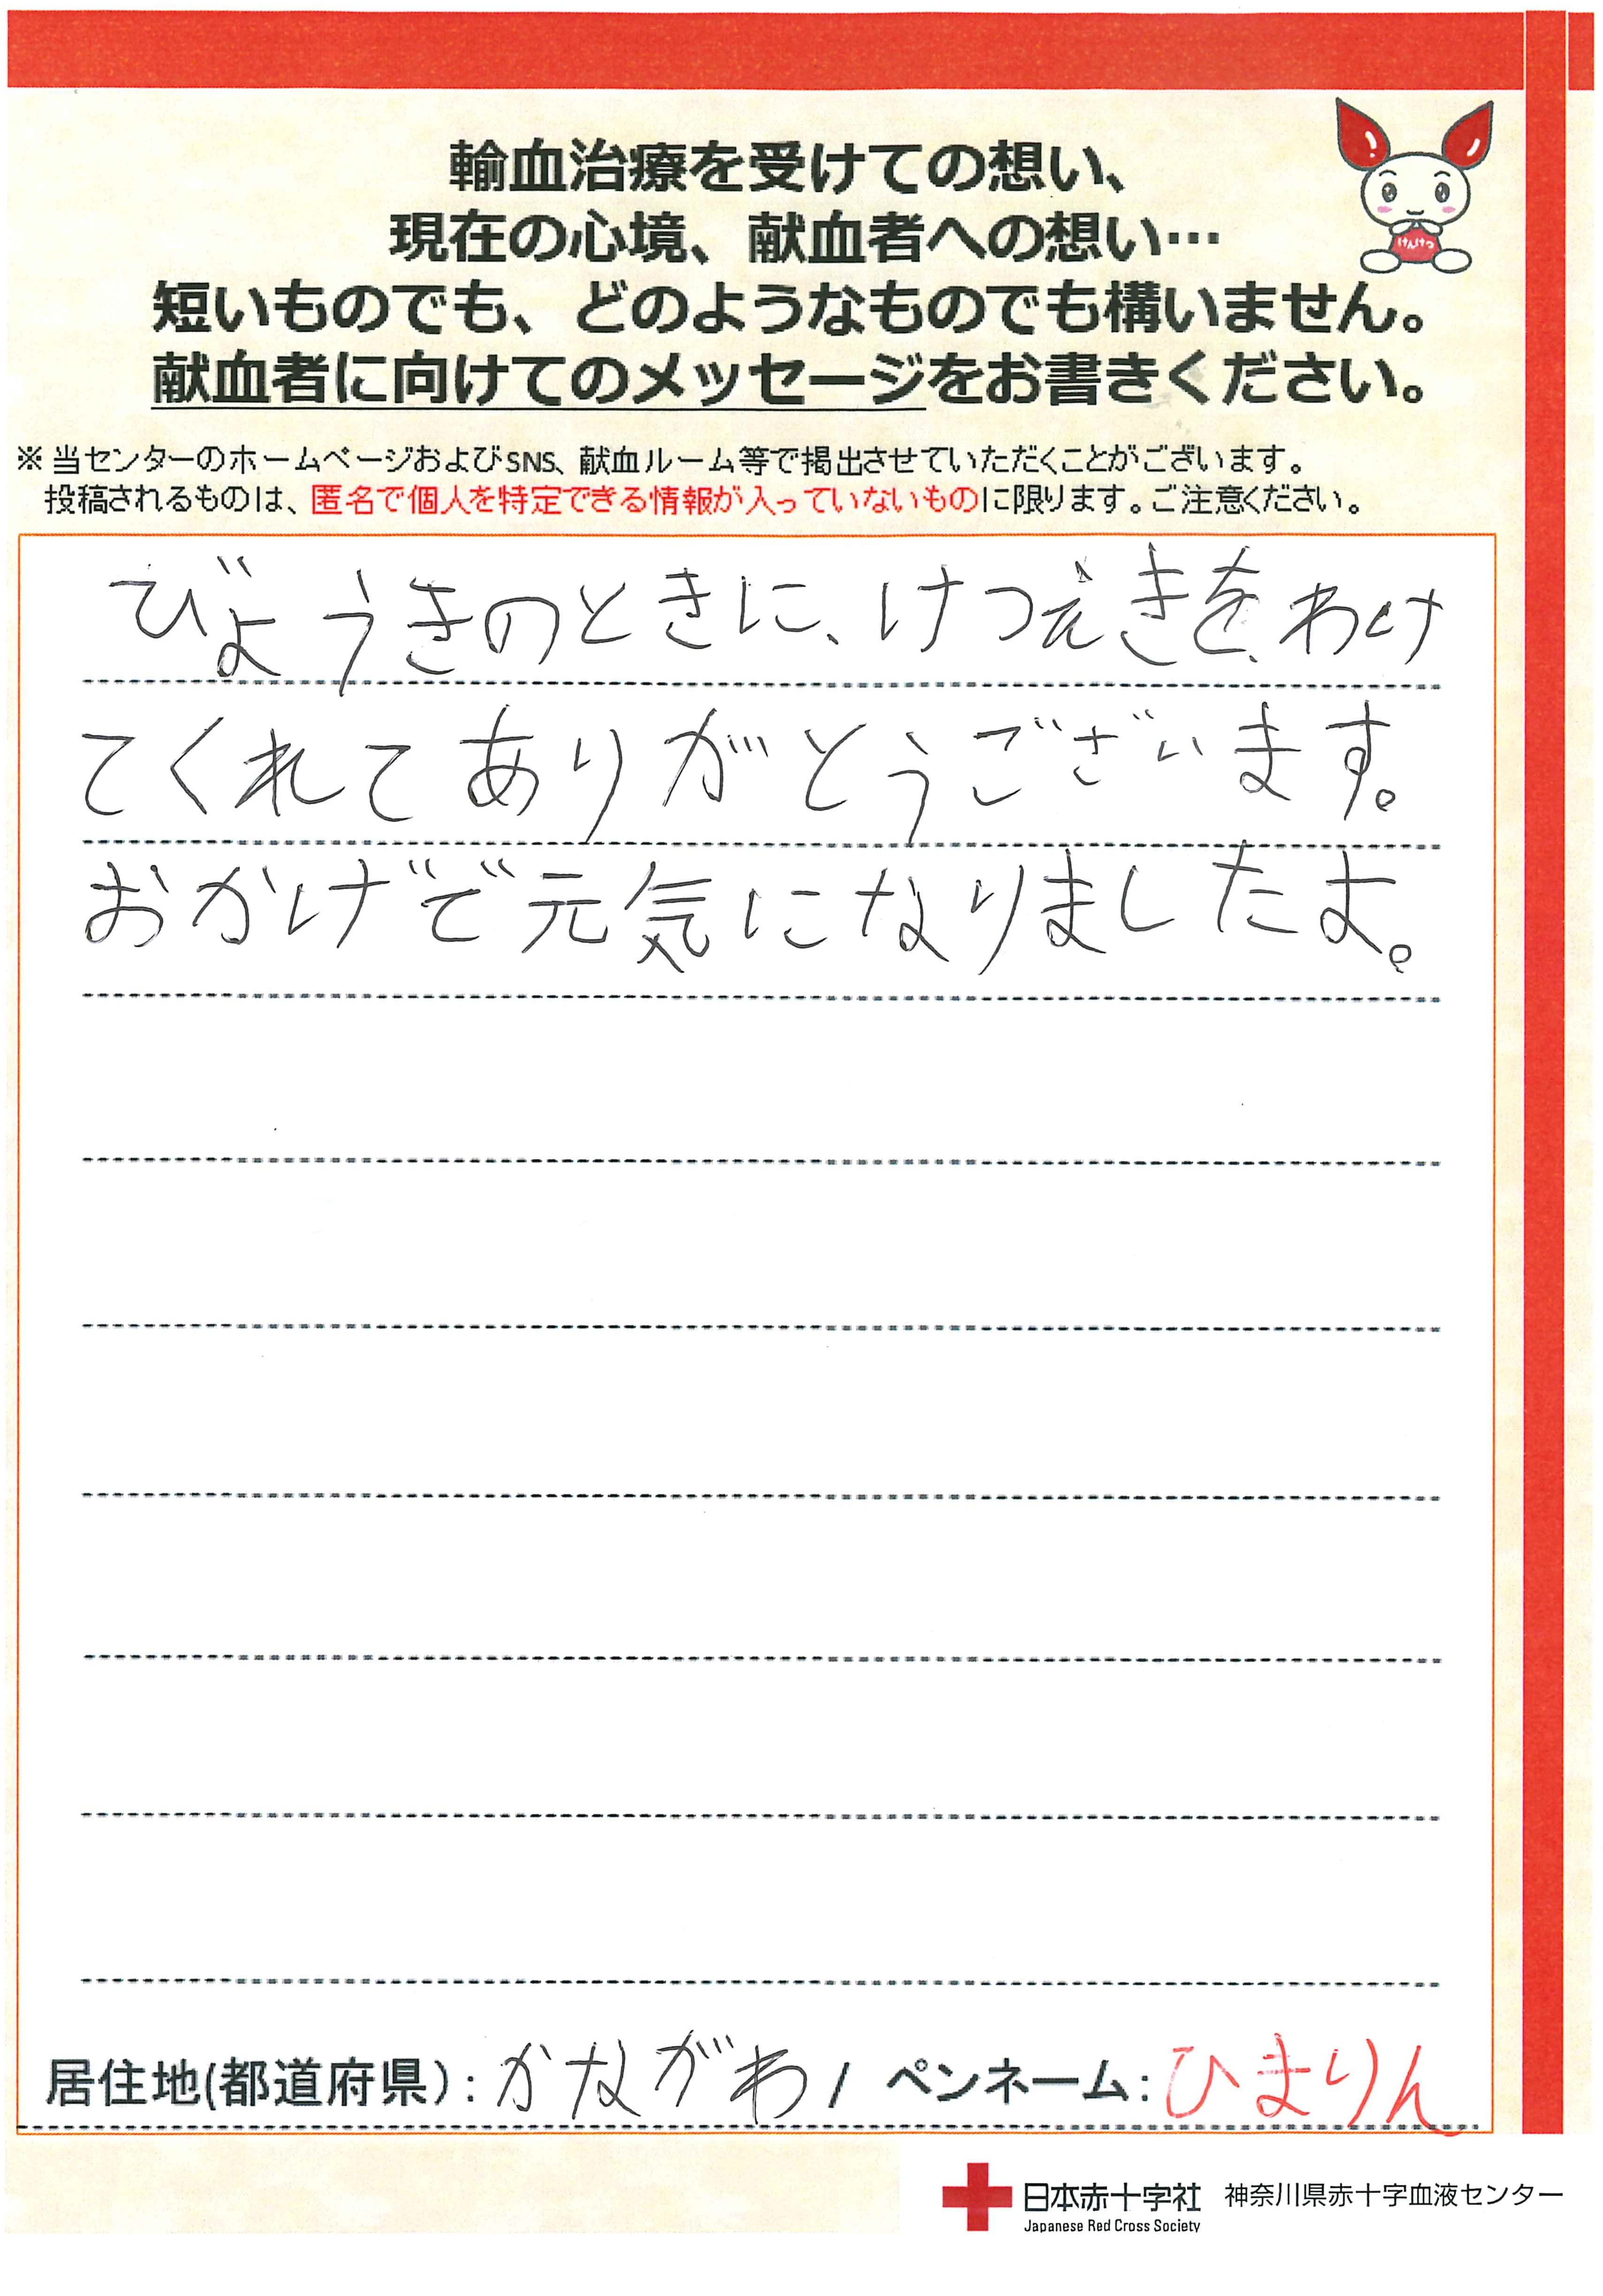 輸血治療を受けての想い、
現在の心境、献血者への想い…
短いものでも、どのようなものでも構いません。
献血者に向けてのメッセージをお書きください。
けんけつ
※当センターのホームページおよびSNS、献血ルーム等で掲出させていただくことがございます。
投稿されるものは、匿名で個人を特定できる情報が入っていないものに限ります。ご注意ください。
びょうきのときに、けつえきを、わけ
てくれてありがとうございます。
おかげで元気になりましたよ。
居住地(都道府県)：かながわ / ペンネーム：ひまりん
日本赤十字社 神奈川県赤十字血液センター
Japanese Red Cross Society